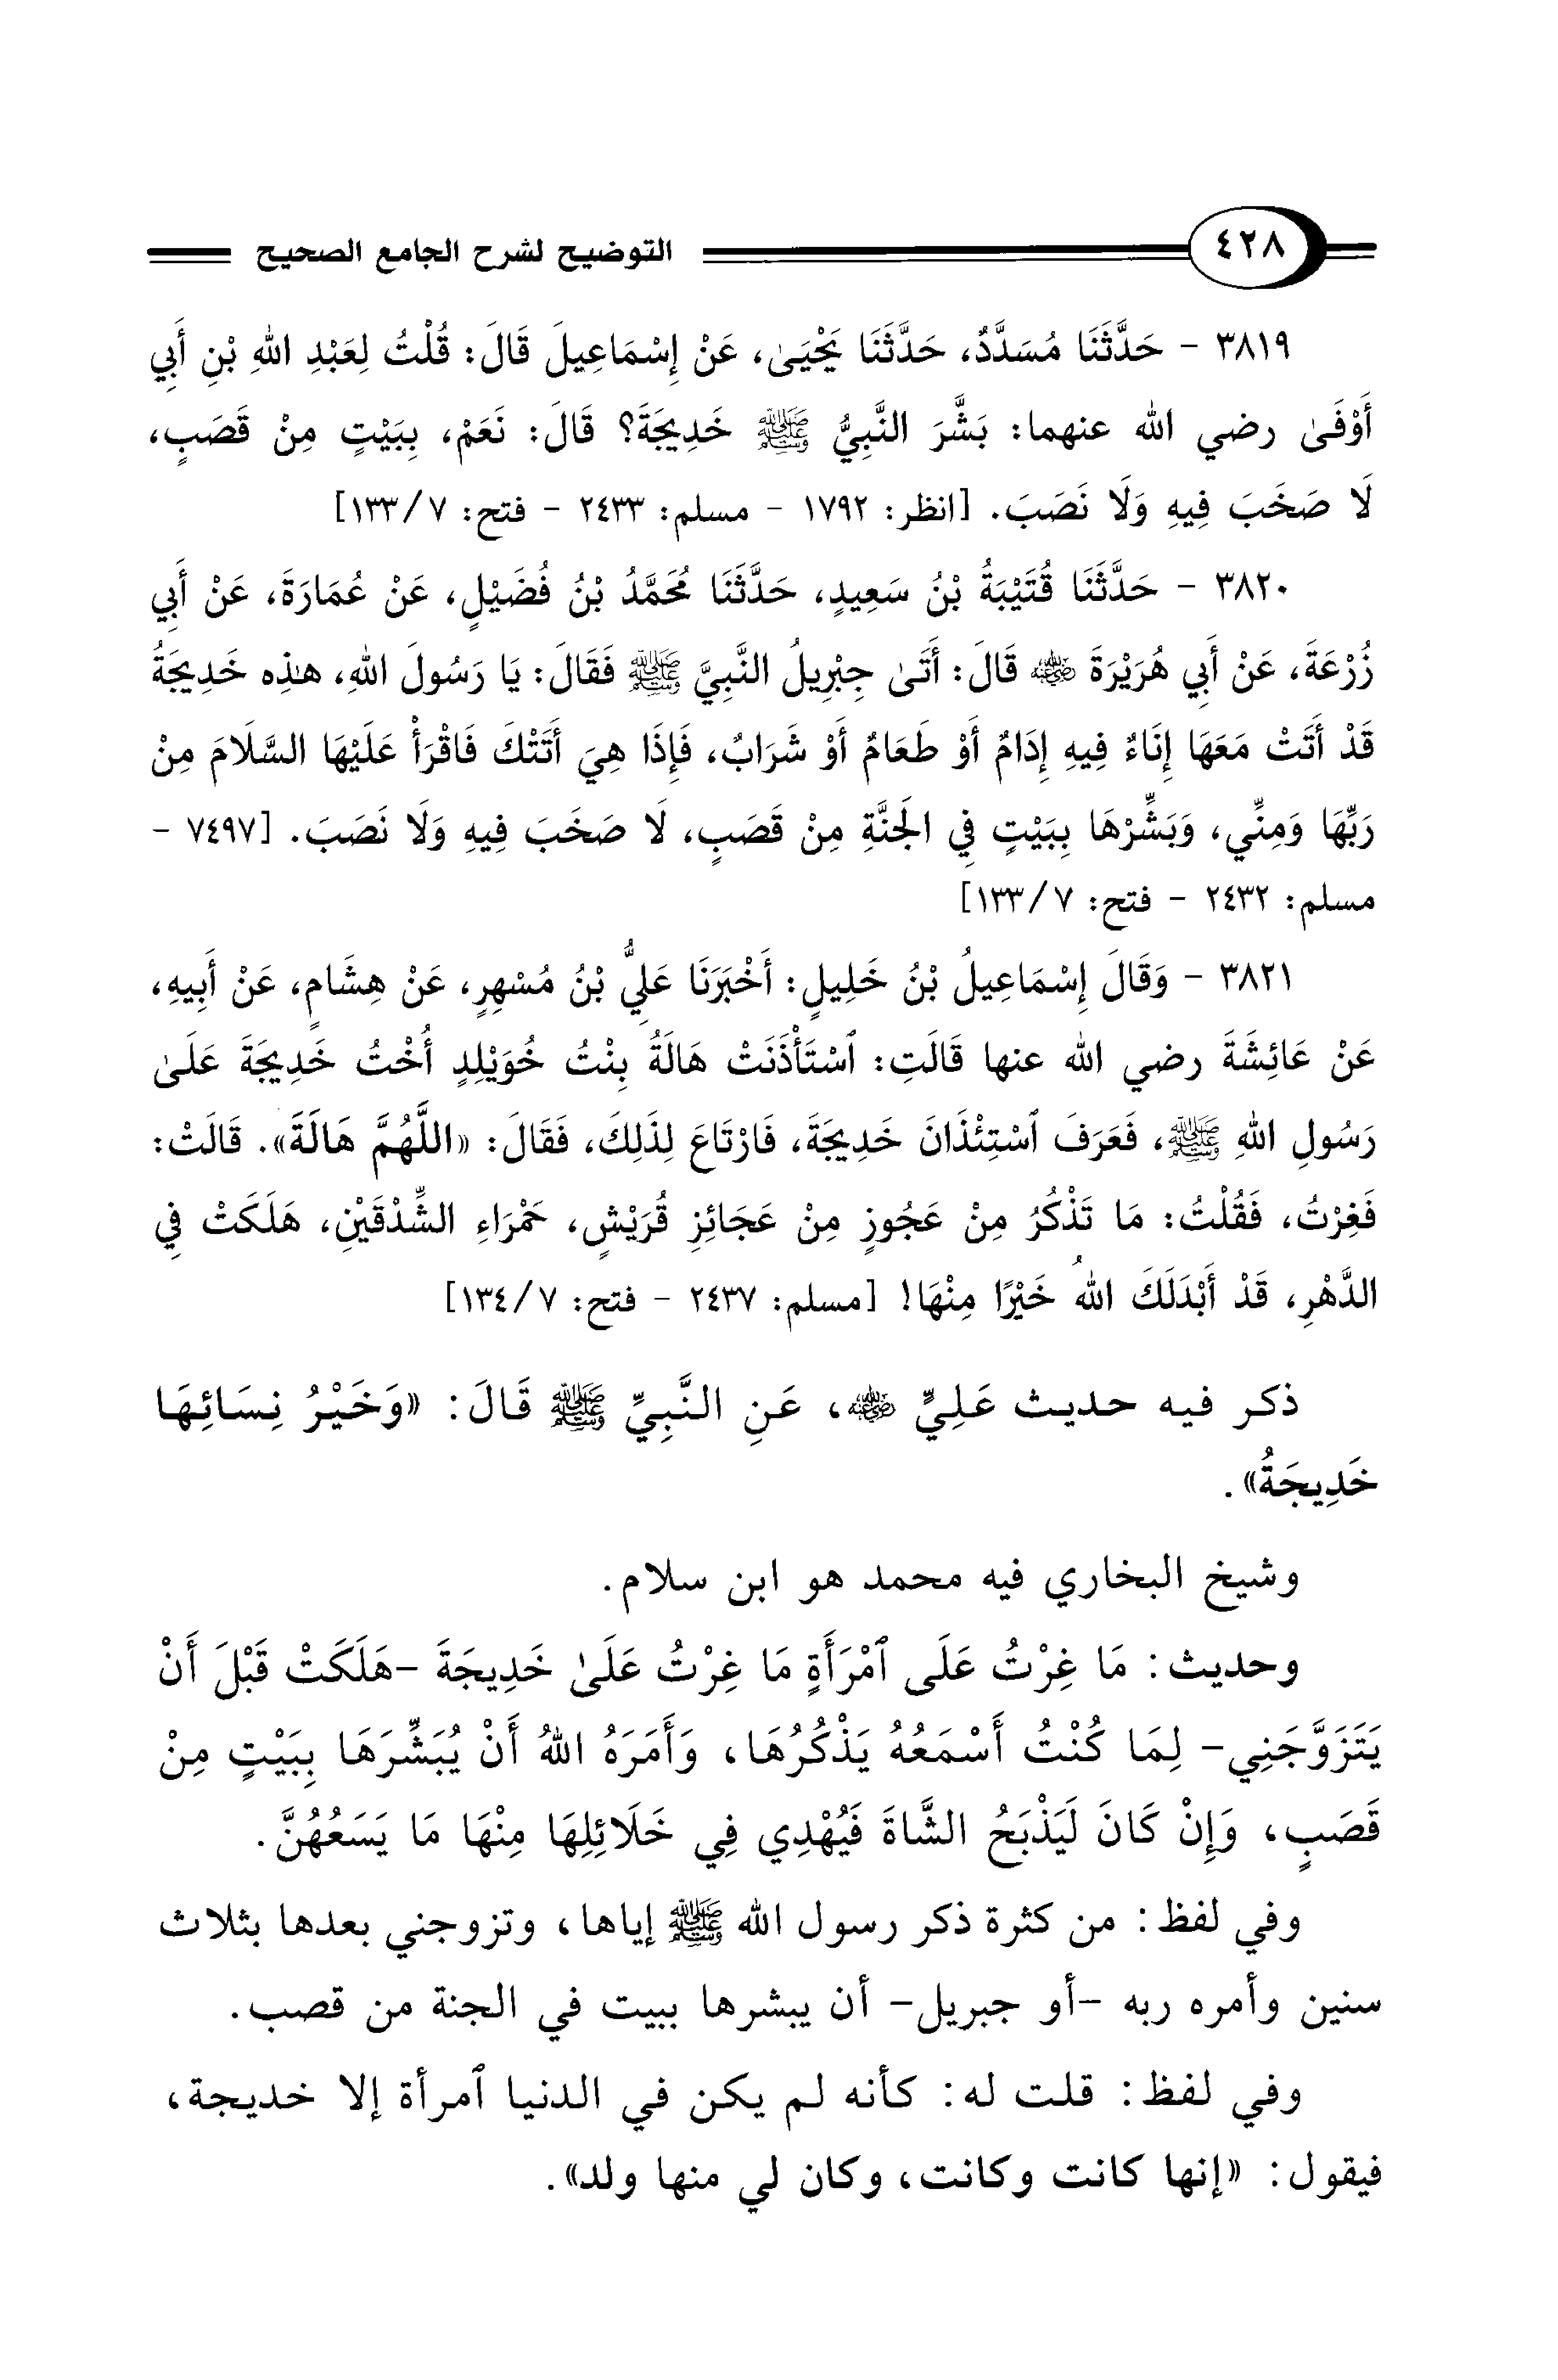 ٤٢٨ التوضيح لشرح الجامع الصحيح
٣٨١٩ - حَدَّثَنَا مُسَدَّدٌ، حَدَّثَنَا يَحْيَىٰ، عَنْ إِسْمَاعِيلَ قَالَ: قُلْتُ لِعَبْدِ اللهِ بْنِ أَبِي
أَوْفَىٰ رضي الله عنهما: بَشَّرَ النَّبِيُّ ﷺ خَدِيجَةَ؟ قَالَ: نَعَمْ، بِبَيْتٍ مِنْ قَصَبٍ،
لَا صَخَبَ فِيهِ وَلَا نَصَبَ. [انظر: ١٧٩٢ - مسلم: ٢٤٣٣ - فتح: ٧/ ١٣٣]
٣٨٢٠ - حَدَّثَنَا قُتَيْبَةُ بْنُ سَعِيدٍ، حَدَّثَنَا مُحَمَّدُ بْنُ فُضَيْلٍ، عَنْ عُمَارَةَ، عَنْ أَبِي
زُرْعَةَ، عَنْ أَبِي هُرَيْرَةَ ﵁ قَالَ: أَتَىٰ جِبْرِيلُ النَّبِيَّ ﷺ فَقَالَ: يَا رَسُولَ اللهِ، هٰذِه خَدِيجَةُ
قَدْ أَتَتْ مَعَهَا إِنَاءٌ فِيهِ إِدَامٌ أَوْ طَعَامٌ أَوْ شَرَابٌ، فَإِذَا هِيَ أَتَتْكَ فَاقْرَأْ عَلَيْهَا السَّلَامَ مِنْ
رَبِّهَا وَمِنِّي، وَبَشِّرْهَا بِبَيْتٍ فِي الجَنَّةِ مِنْ قَصَبٍ، لَا صَخَبَ فِيهِ وَلَا نَصَبَ. [٧٤٩٧ -
مسلم: ٢٤٣٢ - فتح: ٧/ ١٣٣]
٣٨٢١ - وَقَالَ إِسْمَاعِيلُ بْنُ خَلِيلٍ: أَخْبَرَنَا عَلِيُّ بْنُ مُسْهِرٍ، عَنْ هِشَامٍ، عَنْ أَبِيهِ،
عَنْ عَائِشَةَ رضي الله عنها قَالَتِ: ٱسْتَأْذَنَتْ هَالَةُ بِنْتُ خُوَيْلِدٍ أُخْتُ خَدِيجَةَ عَلَىٰ
رَسُولِ اللهِ ﷺ، فَعَرَفَ ٱسْتِئْذَانَ خَدِيجَةَ، فَارْتَاعَ لِذَلِكَ، فَقَالَ: «اللَّهُمَّ هَالَةَ». قَالَتْ:
فَغِرْتُ، فَقُلْتُ: مَا تَذْكُرُ مِنْ عَجُوزٍ مِنْ عَجَائِزِ قُرَيْشٍ، حَمْرَاءِ الشِّدْقَيْنِ، هَلَكَتْ فِي
الدَّهْرِ، قَدْ أَبْدَلَكَ اللهُ خَيْرًا مِنْهَا! [مسلم: ٢٤٣٧ - فتح: ٧/ ١٣٤]
ذكر فيه حديث عَلِيٍّ ﵁، عَنِ النَّبِيِّ ﷺ قَالَ: «وَخَيْرُ نِسَائِهَا
خَدِيجَةُ».
وشيخ البخاري فيه محمد هو ابن سلام.
وحديث: مَا غِرْتُ عَلَى ٱمْرَأَةٍ مَا غِرْتُ عَلَىٰ خَدِيجَةَ -هَلَكَتْ قَبْلَ أَنْ
يَتَزَوَّجَنِي- لِمَا كُنْتُ أَسْمَعُهُ يَذْكُرُهَا، وَأَمَرَهُ اللهُ أَنْ يُبَشِّرَهَا بِبَيْتٍ مِنْ
قَصَبٍ، وَإِنْ كَانَ لَيَذْبَحُ الشَّاةَ فَيُهْدِي فِي خَلَائِلِهَا مِنْهَا مَا يَسَعُهُنَّ.
وفي لفظ: من كثرة ذكر رسول الله ﷺ إياها، وتزوجني بعدها بثلاث
سنين وأمره ربه -أو جبريل- أن يبشرها ببيت في الجنة من قصب.
وفي لفظ: قلت له: كأنه لم يكن في الدنيا ٱمرأة إلا خديجة،
فيقول: «إنها كانت وكانت، وكان لي منها ولد».